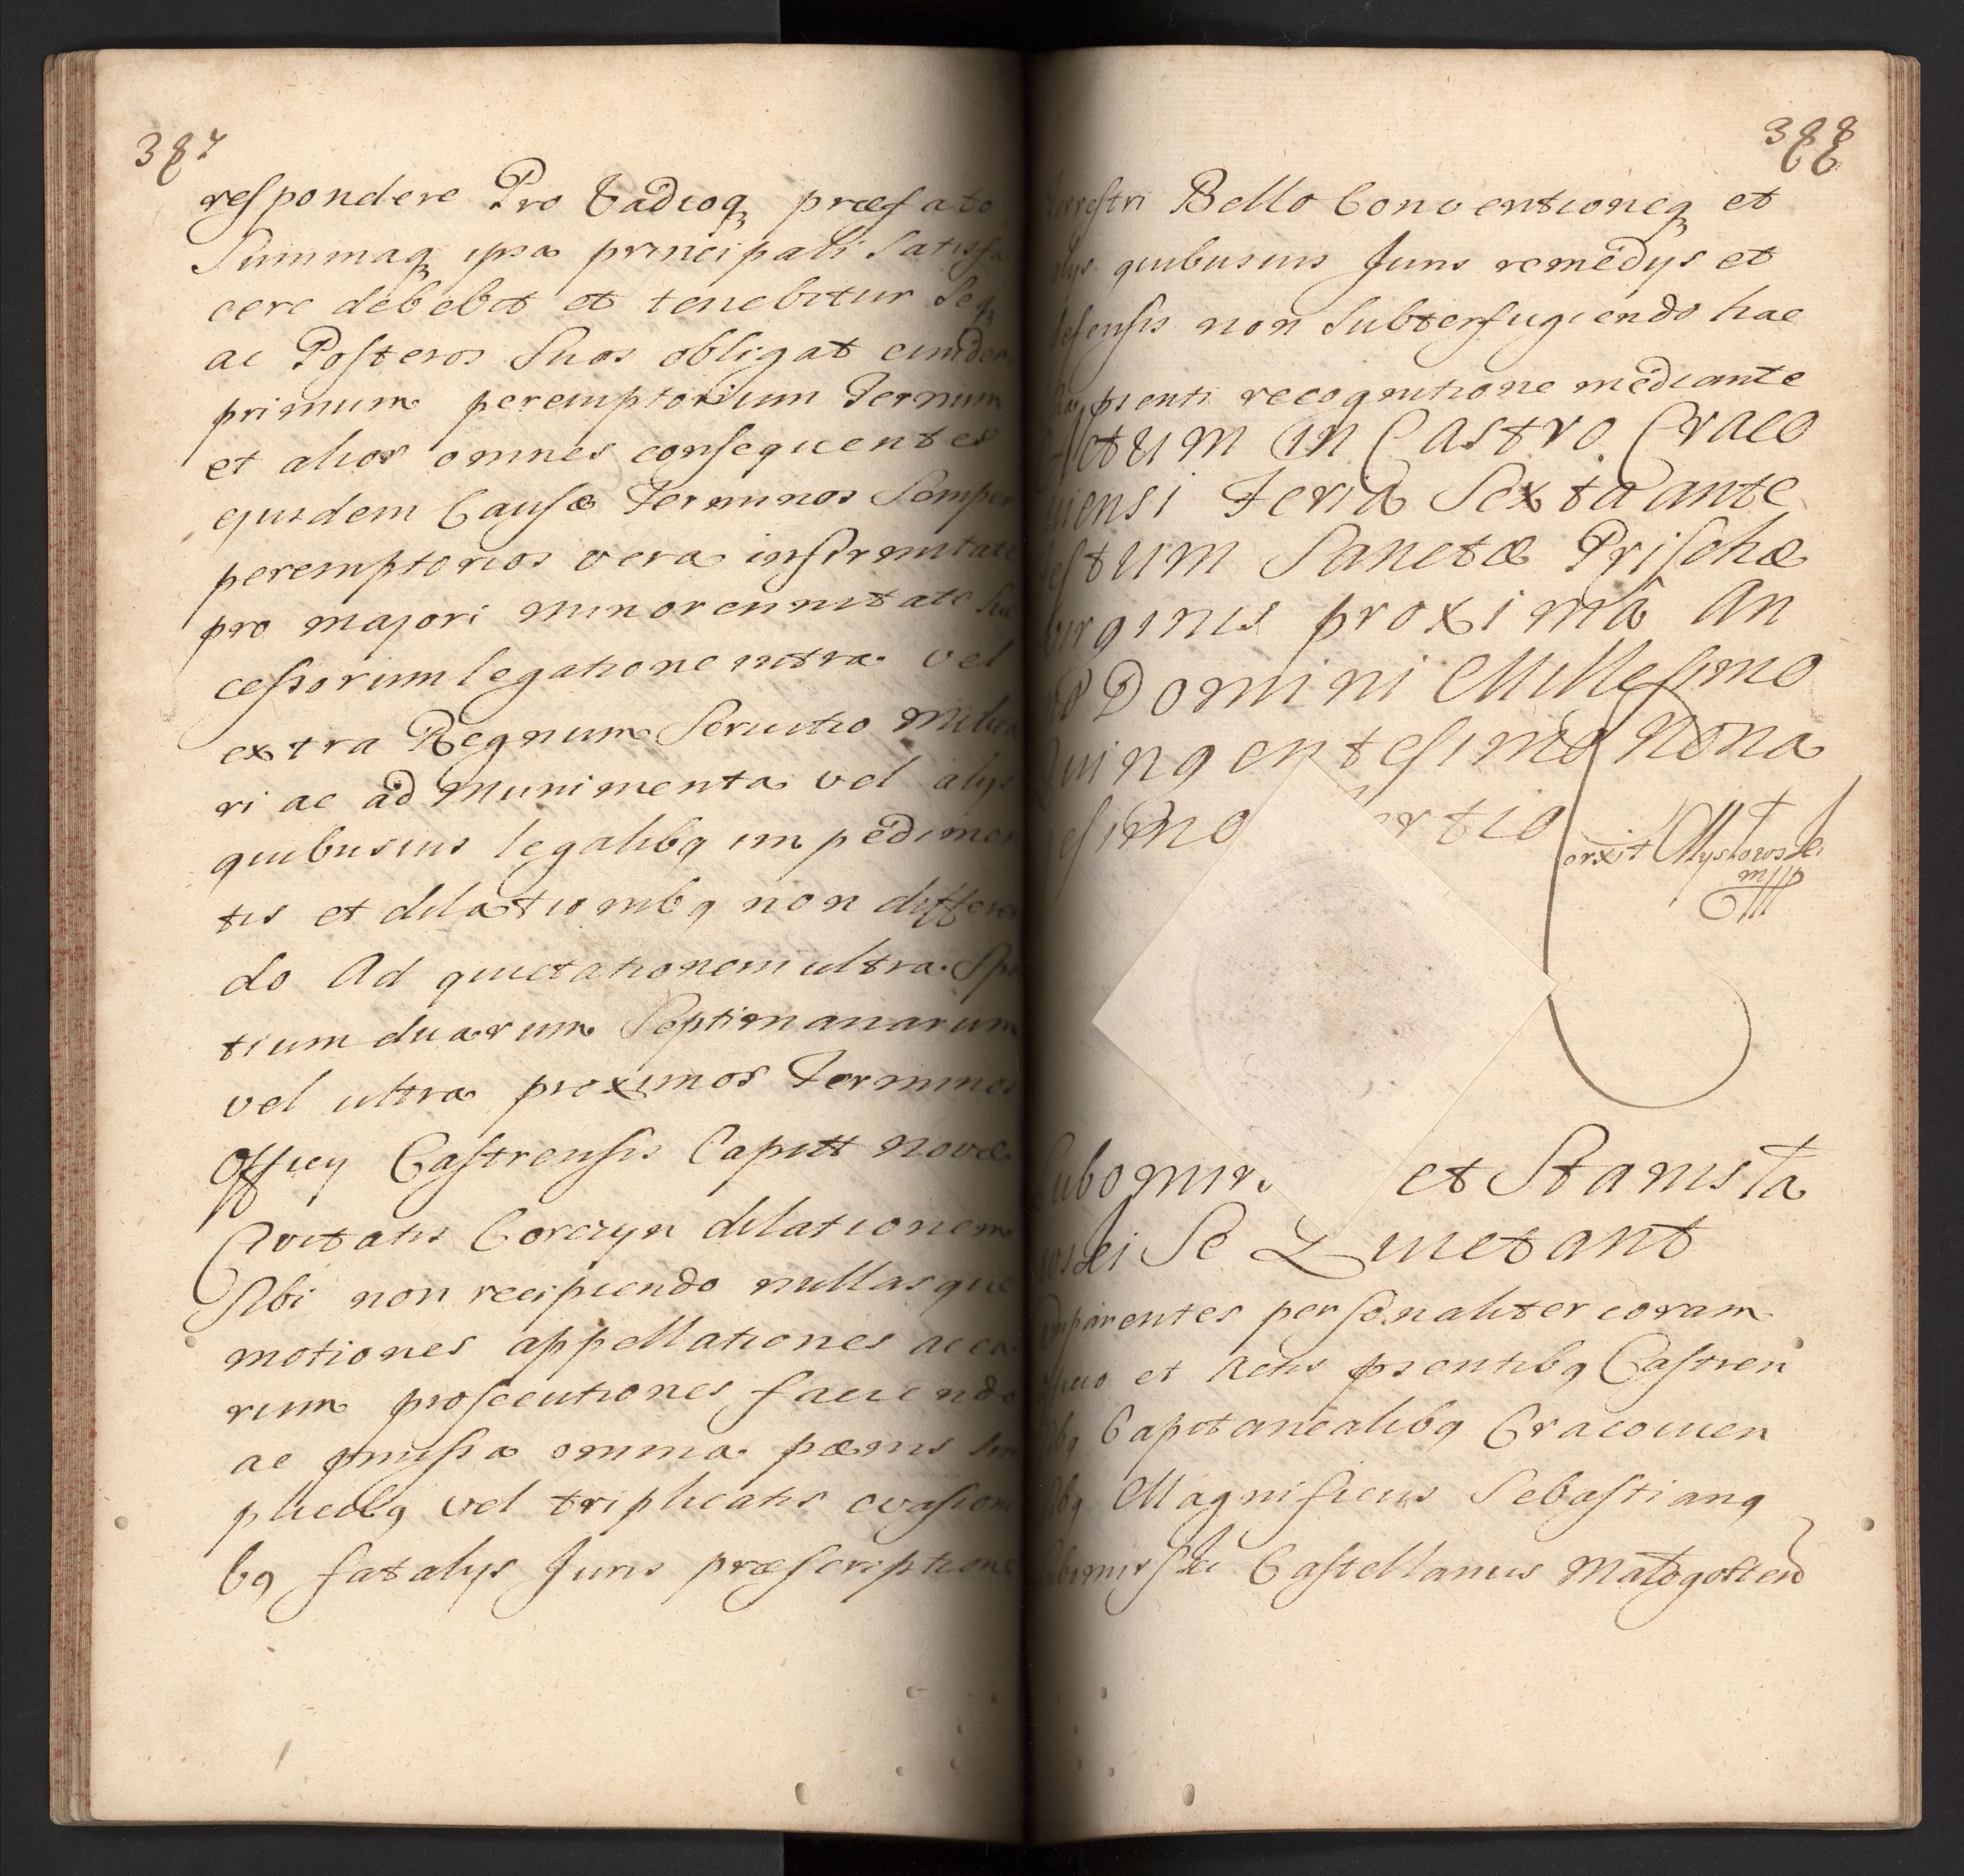 387
respondere Pro Vadioq₃ præfato
Summaq₃ ipsa principali Satisfa
cere debebit et tenebitur Seq₃
ac Posteros Suos obligat eundem
primum peremptorium Terminum
et alios omnes consequentes
ejusdem Causæ Terminos Semper
peremptorios vera infirmitate
pro majori minorennitate Suc
cessorum legatione intra vel
extra Regnum Servitio Milita
ri ac ad Munimenta vel alijs
quibusvis legalibq impedimen
tis et dilationibq non differen
do Ad quietationem ultra Spa
tium duarum Septimanarum
vel ultra proximos Terminos
Officij Castrensis Capitt Novæ
Civitatis Corczyn dilationem
Sibi non recipiendo nullasque
motiones appellationes ac ea
rum prosecutiones faciendo
ac pmissa omnia pænis Sim
plicibq vel triplicatis evasioni
bq fatalijs Juris præscriptione
388
terrestri Bello Conventioneq₃ et
alijs quibusvis Juris remedijs et
defensis non Subterfugiendo hac
psenti recognitione mediante
Actum in Castro Craco
viensi Feria Sexta ante
festum Sanctæ Prischæ
Virginis proxima An
no Domini Millesimo
Quingentesimo Nona
gesimo ertio
orxit Myslowski
mpp
Lubomir et Stanisła
wski Se Quietant
Comparentes personaliter coram
Officio et Actis psentibq Castren
sibq Capitanealibq Cracovien
sibq Magnificus Sebastianq
Lubomirski Castellanus Małogosten